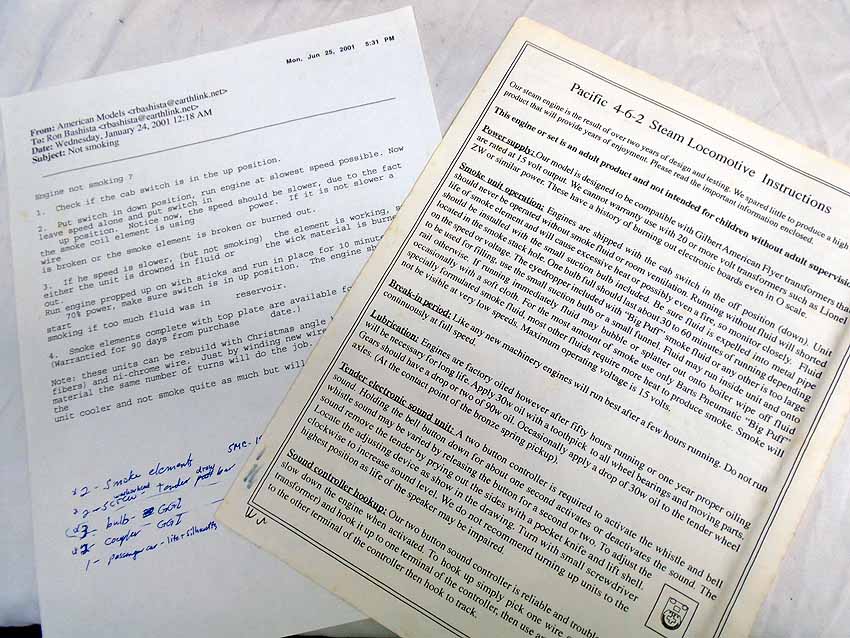 Mon, Jun 25, 2001 5:31 PM
From: American Models <rbashista@earthlink.net>
To: Ron Bashista <rbashista@earthlink.net>
Date: Wednesday, January 24, 2001 12:18 AM
Subject: Not smoking
Engine not smoking ?
1. Check if the cab switch is in the up position.
2. Put switch in down position, run engine at slowest speed possible. Now
leave speed alone and put switch in
up position. Notice now, the speed should be slower, due to the fact
the smoke coil element is using power. If it is not slower a
wire
is broken or the smoke element is broken or burned out.
3. If he speed is slower, (but not smoking) the element is working, s
either the unit is drowned in fluid or the wick material is burne
out.
Run engine propped up on with sticks and run in place for 10 minute
70% power, make sure switch is in up position. The engine shou
start
smoking if too much fluid was in reservoir.
4. Smoke elements complete with top plate are available fo
(Warrantied for 90 days from purchase date.)
Note: these units can be rebuild with Christmas angle
fibers) and ni-chrome wire. Just by winding new wire
material the same number of turns will do the job.
the
unit cooler and not smoke quite as much but will
SMC-
2 - Smoke elements
tender
3 - bulb - GG1
2 - coupler - GG1
1 - passenger car - lite + silhouetts
Pacific 4-6-2 Steam Locomotive Instructions
Our steam engine is the result of over two years of design and testing. We spared little to produce a high
product that will provide years of enjoyment. Please read the important information enclosed.
This engine or set is an adult product and not intended for children without adult supervision
Power supply: Our model is designed to be compatible with Gilbert American Flyer transformers that
are rated at 15 volt output. We cannot warranty use with 20 or more volt transformers such as Lionel
ZW or similar power. These have a history of burning out electronic boards even in O scale.
Smoke unit operation: Engines are shipped with the cab switch in the off position (down). Unit
should never be operated without smoke fluid or room ventilation. Running without fluid will shorten
life of smoke element and will cause excessive heat or possibly even a fire, so monitor closely. Fluid
should be installed with the small suction bulb included. Be sure fluid is expelled into metal pipe
located in the smoke stack hole. One bulb full should last about 30 to 60 minutes of running depending
on the speed or voltage. The eyedropper included with "Big Puff" smoke fluid or any other is too large
to be used for filling, use the small suction bulb or a small funnel. Fluid may run inside unit and onto
rails otherwise. If running immediately fluid may bubble or splatter out onto boiler wipe off fluid
occasionally with a soft cloth. For the most amount of smoke use only Barts Pneumatic "Big Puff"
specially formulated smoke fluid, most other fluids require more heat to produce smoke. Smoke will
not be visible at very low speeds. Maximum operating voltage is 15 volts.
Break-in period: Like any new machinery engines will run best after a few hours running. Do not run
continuously at full speed.
Lubrication: Engines are factory oiled however after fifty hours running or one year proper oiling
will be necessary for long life. Apply 30w oil with a toothpick to all wheel bearings and moving parts.
Gears should have a drop or two of 90w oil. Occasionally apply a drop of 30w oil to the tender wheel
axles. (At the contact point of the bronze spring pickup).
Tender electronic sound unit: A two button controller is required to activate the whistle and bell
sound. Holding the bell button down for about one second activates or deactivates the sound. The
whistle sound may be varied by releasing the button for a second or two. To adjust the
sound remove the tender by prying out the sides with a pocket knife and lift shell.
Locate the adjusting device as show in the drawing. Turn with small screwdriver
clockwise to increase sound level. We do not recommend turning up units to the
highest position as life of the speaker may be impaired.
Sound controller hookup: Our two button sound controller is reliable and trouble
slow down the engine when activated. To hook up simply pick one wire
transformer) and hook it up to one terminal of the controller, then use an
to the other terminal of the controller then hook to track.